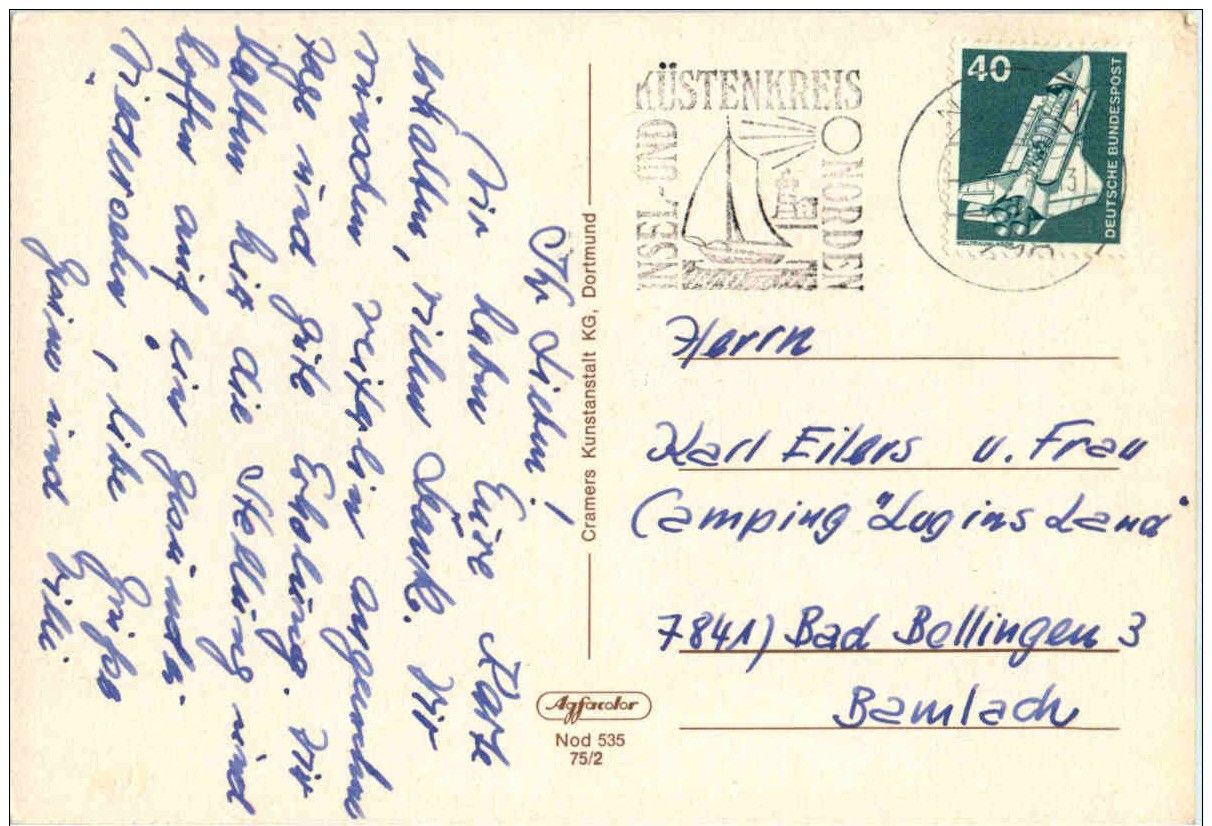 Ihr Lieben!
Wir haben Eure Karte
erhalten, vielen Dank. Wir
wünschen weiterhin angenehme
Tage und gute Erholung. Wir
halten hier die Stellung und
hoffen auf ein gesundes
Wiedersehen, liebe Grüße
und Willi.
Cramers Kunstanstalt KG, Dortmund
Agfacolor
Nod 535
75/2
INSEL- UND
KÜSTENKREIS
NORDEN
40
DEUTSCHE BUNDESPOST
Herrn
Karl Eilers u. Frau
Camping "Lugins Land"
7841) Bad Bellingen 3
Bamlach